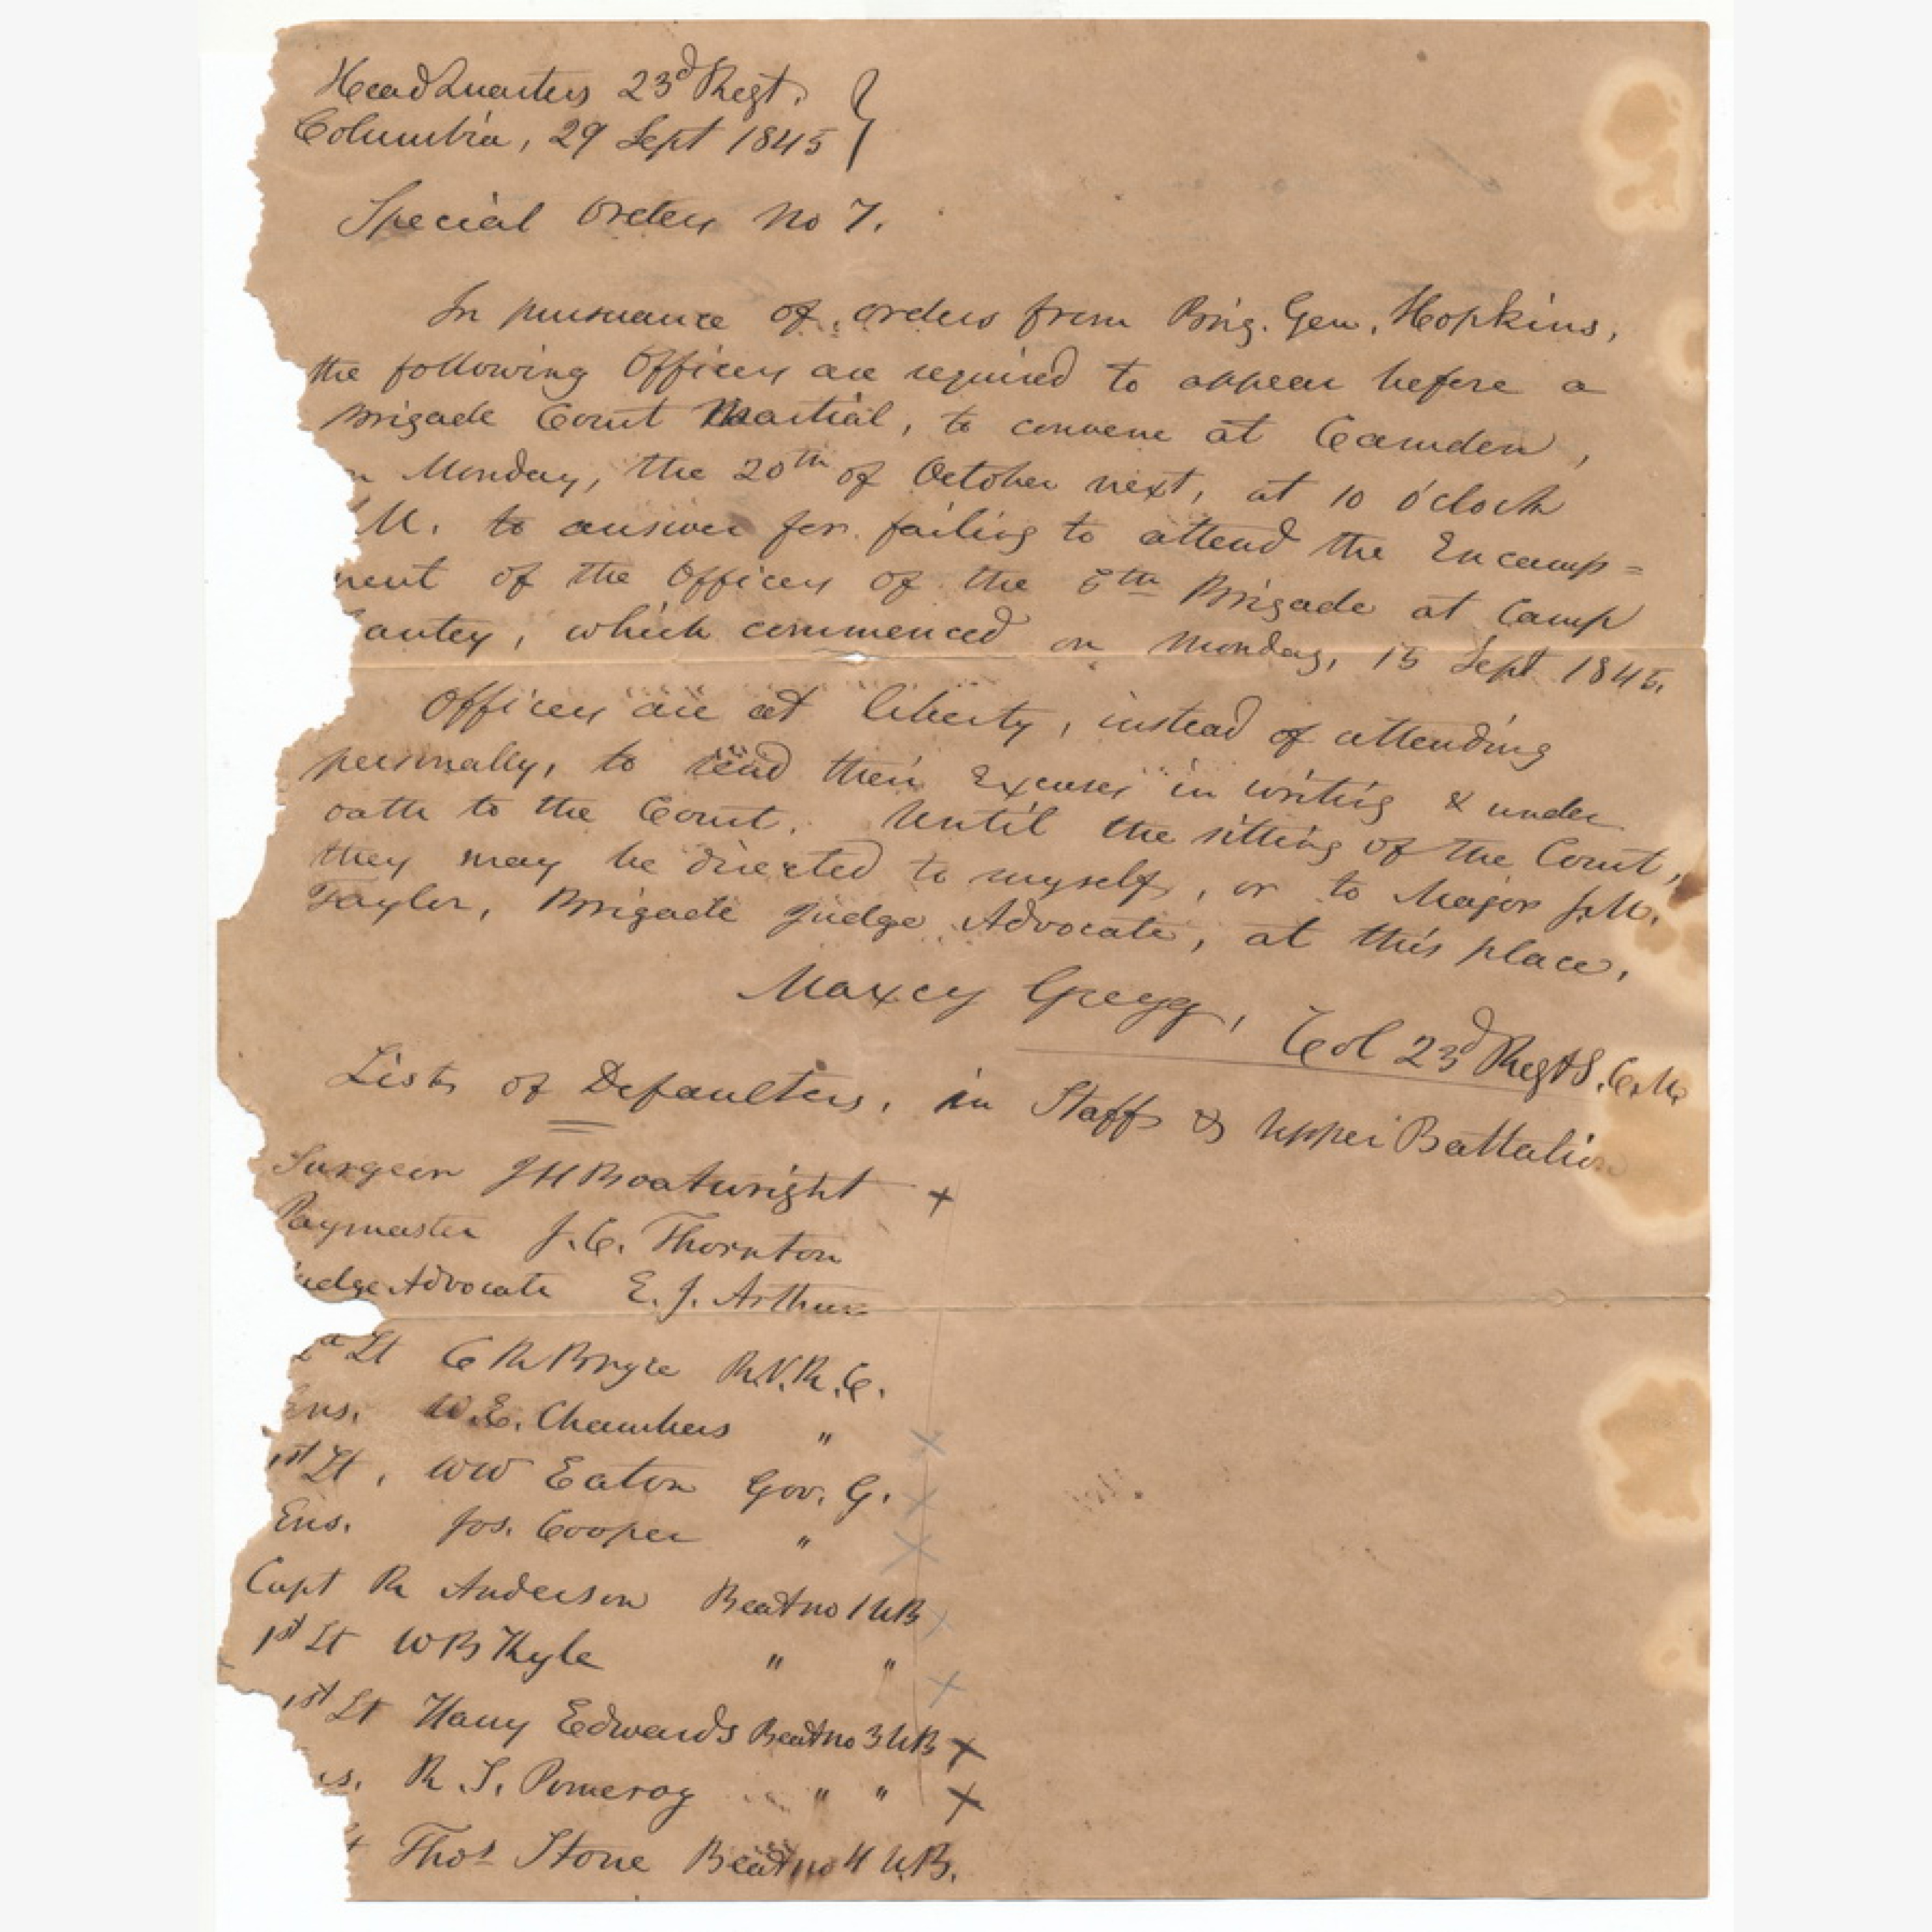 Head Quarters 23d Regt.
Columbia, 29 Sept 1845
Special Orders No 7.
In pursuance of orders from Brig. Gen. Hopkins,
the following Officers are required to appear before a
Brigade Court Martial, to convene at Camden,
n Monday, the 20th of October next, at 10 o'clock
M. to answer for failing to attend the Encamp=
ment of the Officers of the 5th Brigade at Camp
antey, which commenced on Monday, 15 Sept 1845.
Officers are at liberty, instead of attending
personally, to send their Excuses in writing & under
oath to the Court. Until the sitting of the Court,
they may be directed to myself, or to Major J.M.
Taylor, Brigade Judge Advocate, at this place.
Maxcy Gregg, Col 23d Regt S.C.M.
List of Defaulters, in Staff & Upper Battalion
Surgeon J H Boatwright +
Paymaster J.C. Thornton
udge Advocate E.J. Arthur
2d Lt C R Bryce R.V.R.C.
Ens. W.E. Chambers " X
1st Lt. W W Eaton Gov. G. X
Ens. Jos. Cooper " X
Capt R Anderson Beat no 1 UB X
1st Lt W B Kyle " " X
1st Lt Harry Edwards Beat no 3 UB X
s. R S. Pomeroy " " X
t Thos Stone Beat no 4 U.B.